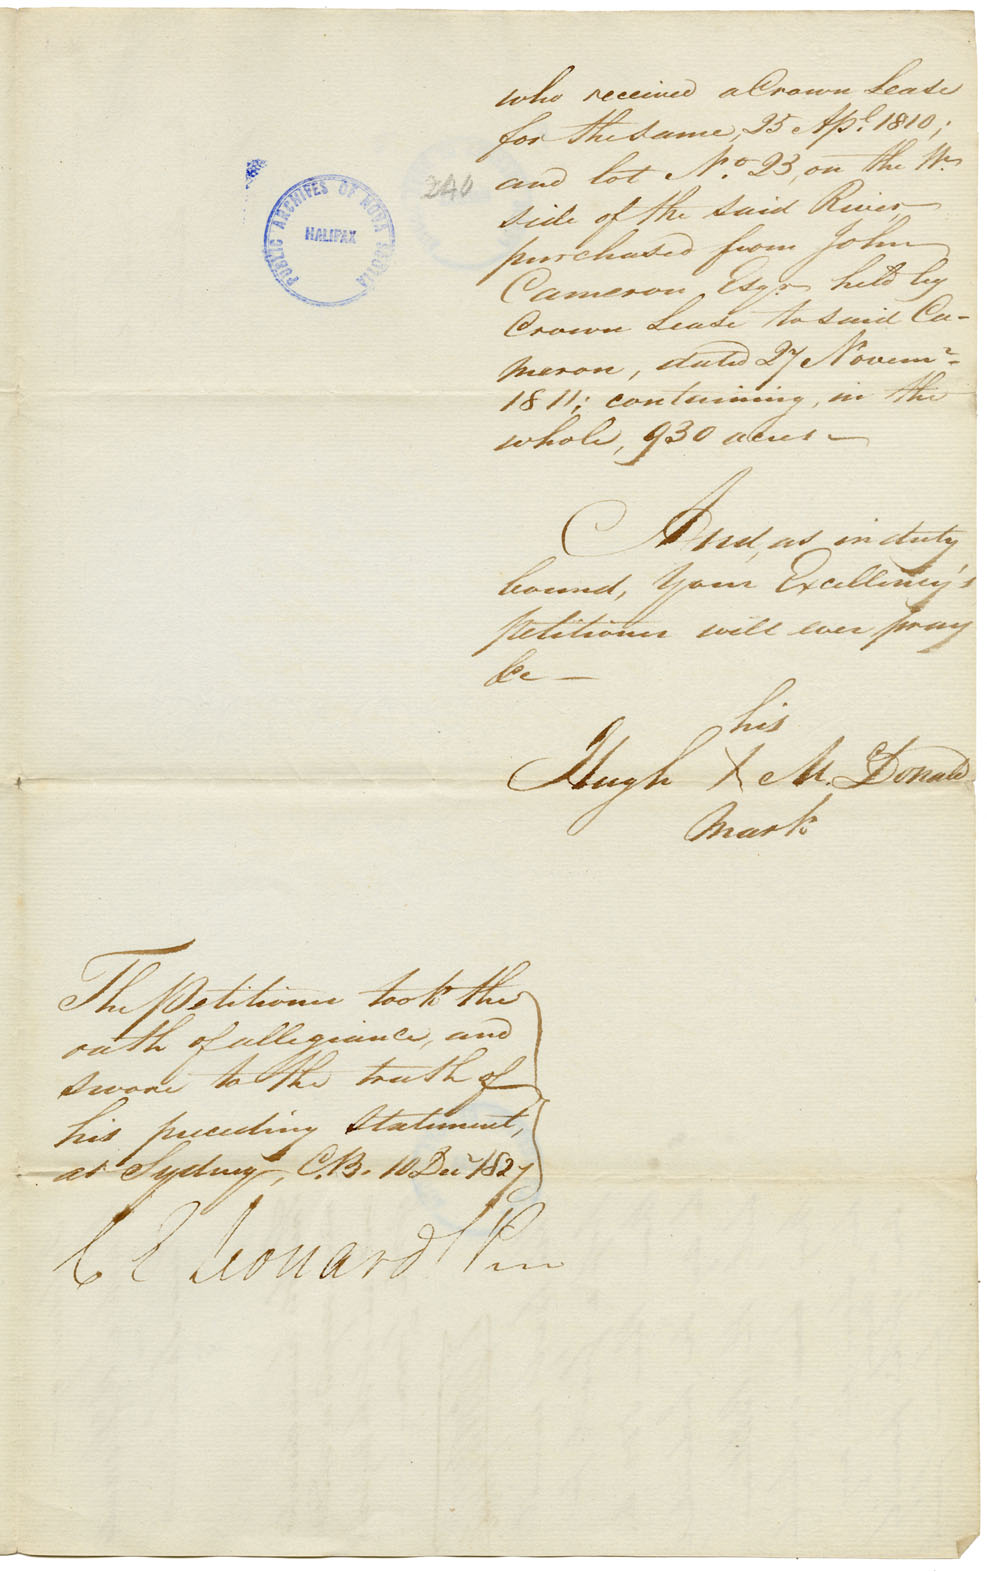 who received a Crown Lease
for the same, 25 Apl. 1810;
and lot No. 23, on the Wn.
side of the said River,
purchased from John
Cameron Esqr. held by
Crown Lease to said Ca-
meron, dated 27 Novemr.
1811; containing, in the
whole, 930 acres—
And, as in duty
bound, Your Excellency's
petitioner will ever pray
&c —
his
Hugh X McDonald
mark
PUBLIC ARCHIVES OF NOVA SCOTIA
HALIFAX
240
The Petitioner took the
oath of allegiance, and
swore to the truth of
his preceding statement,
at Sydney, C.B. 10 Decr 1827
C E Leonard Jun